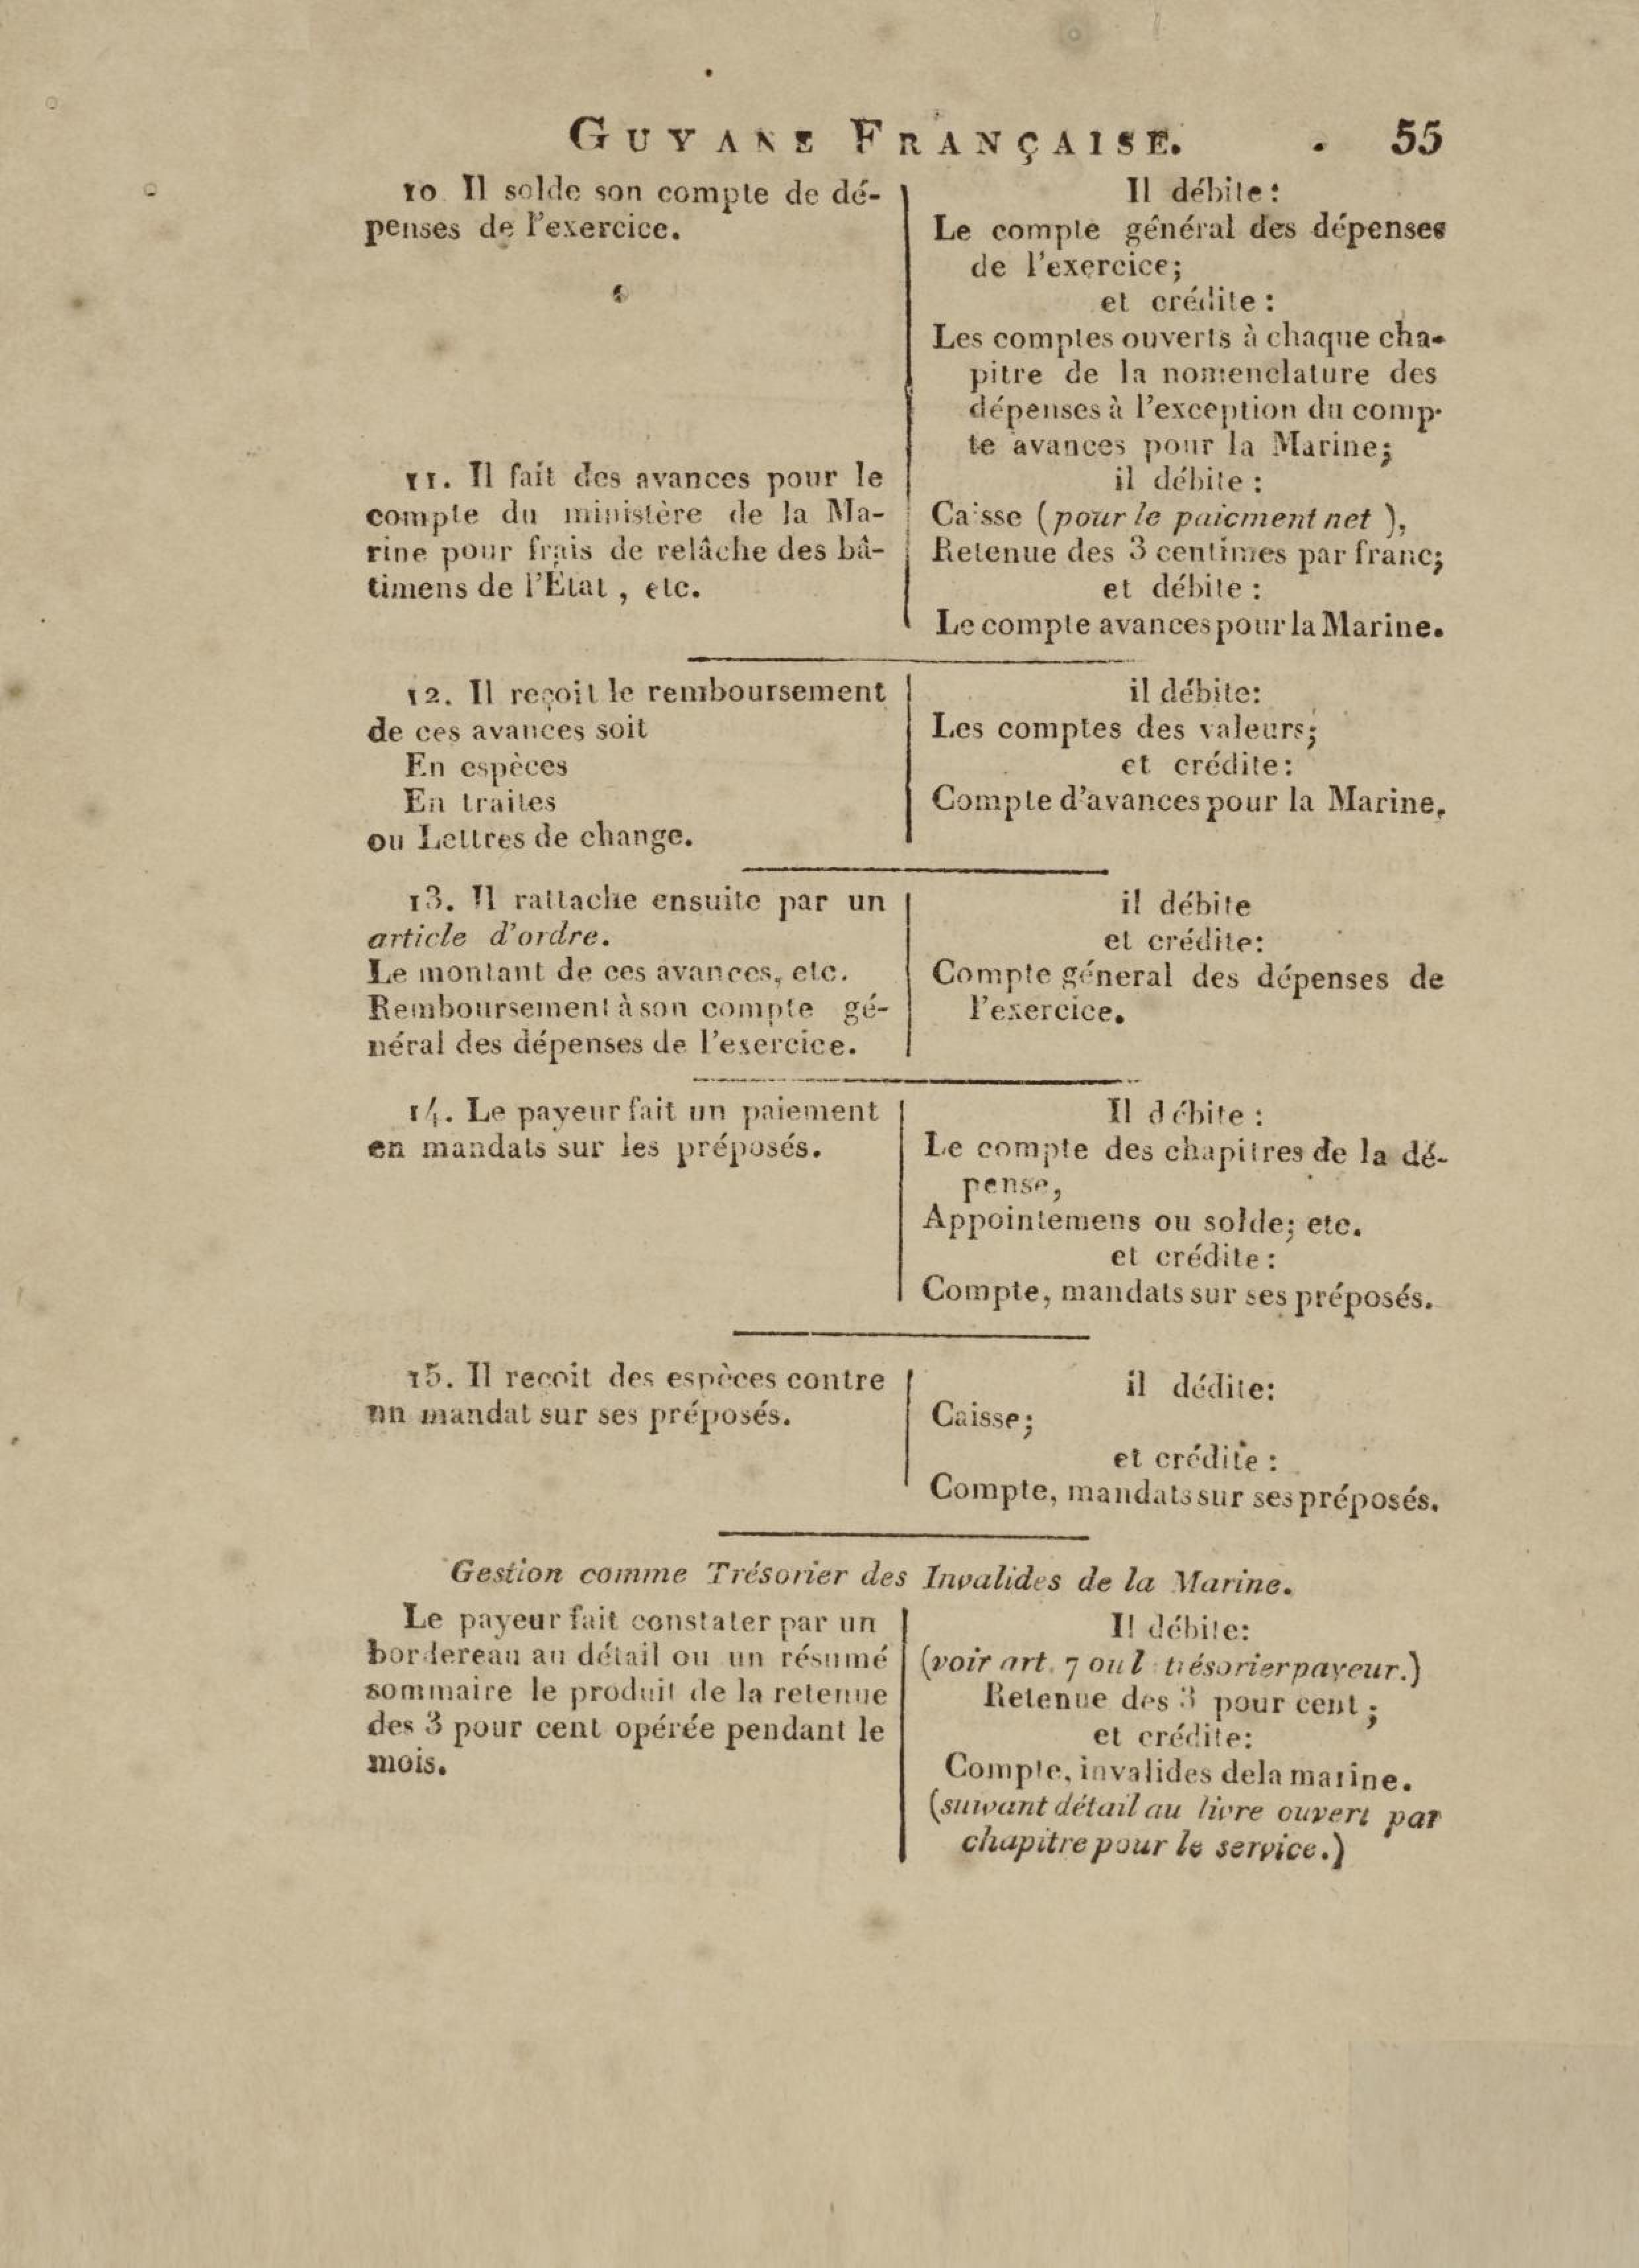 GUYANE FRANÇAISE. 55
10 Il solde son compte de dé-
penses de l'exercice.
Il débite:
Le compte général des dépenses
de l'exercice;
et crédite:
Les comptes ouverts à chaque cha-
pitre de la nomenclature des
dépenses à l'exception du comp-
te avances pour la Marine;
11. Il fait des avances pour le
compte du ministère de la Ma-
rine pour frais de relâche des bâ-
timens de l'État, etc.
il débite:
Caisse (pour le paiement net),
Retenue des 3 centimes par franc;
et débite:
Le compte avances pour la Marine.
12. Il reçoit le remboursement
de ces avances soit
En espèces
En traites
ou Lettres de change.
il débite:
Les comptes des valeurs;
et crédite:
Compte d'avances pour la Marine.
13. Il rattache ensuite par un
article d'ordre.
Le montant de ces avances, etc.
Remboursement à son compte gé-
néral des dépenses de l'esercice.
il débite
et crédite:
Compte géneral des dépenses de
l'exercice.
14. Le payeur fait un paiement
en mandats sur les préposés.
Il débite:
Le compte des chapitres de la dé-
pense,
Appointemens ou solde; etc.
et crédite:
Compte, mandats sur ses préposés.
15. Il reçoit des espèces contre
nn mandat sur ses préposés.
il dédite:
Caisse;
et crédite:
Compte, mandats sur ses préposés.
Gestion comme Trésorier des Invalides de la Marine.
Le payeur fait constater par un
bordereau au détail ou un résumé
sommaire le produit de la retenue
des 3 pour cent opérée pendant le
mois.
Il débite:
(voir art. 7 ou l trésorier payeur.)
Retenue des 3 pour cent;
et crédite:
Compte, invalides de la marine.
(suivant détail au livre ouvert par
chapitre pour le service.)